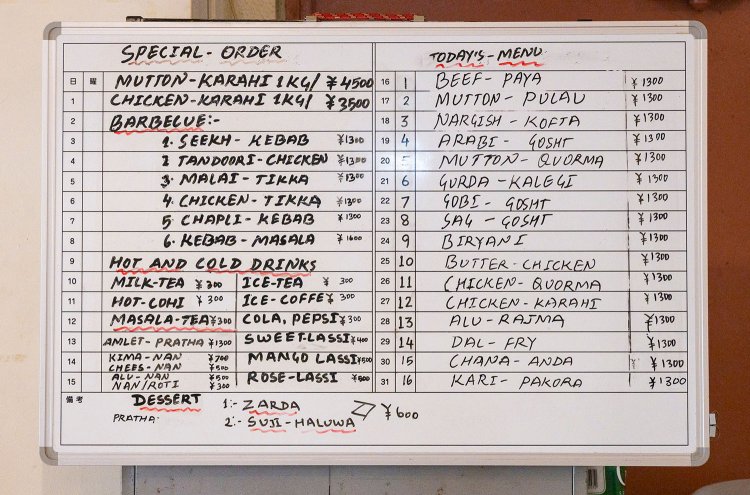 SPECIAL - ORDER
日 曜 MUTTON-KARAHI 1KG/ ¥4500
1 CHICKEN-KARAHI 1KG/ ¥3500
2 BARBECUE:-
3 1. SEEKH-KEBAB ¥1300
4 2 TANDOORI-CHICKEN ¥1300
5 3. MALAI-TIKKA ¥1300
6 4. CHICKEN-TIKKA ¥1300
7 5 CHAPLI-KEBAB ¥1300
8 6. KEBAB-MASALA ¥1600
9 HOT AND COLD DRINKS
10 MILK-TEA ¥300 ICE-TEA ¥ 300
11 HOT-COHI ¥300 ICE-COFFE ¥ 300
12 MASALA-TEA ¥300 COLA, PEPSI ¥300
13 AMLET-PRATHA ¥1300 SWEET-LASSI ¥400
14 KIMA-NAN ¥700 MANGO LASSI ¥500
CHEES-NAN ¥500
15 ALU-NAN ¥500 ROSE-LASSI ¥500
NAN/ROTI ¥300
備考 DESSERT 1:- ZARDA ¥600
PRATHA: 2:- SUJI-HALUWA
TODAY'S-MENU
16 1 BEEF-PAYA ¥1300
17 2 MUTTON-PULAU ¥1300
18 3 NARGISH-KOFTA ¥1300
19 4 ARABI-GOSHT ¥1300
20 5 MUTTON-QUORMA ¥1300
21 6 GURDA-KALEGI ¥1300
22 7 GOBI-GOSHT ¥1300
23 8 SAG-GOSHT ¥1300
24 9 BIRYANI ¥1300
25 10 BUTTER-CHICKEN ¥1300
26 11 CHICKEN-QUORMA ¥1300
27 12 CHICKEN-KARAHI ¥1300
28 13 ALU-RAJMA ¥1300
29 14 DAL-FRY ¥1300
30 15 CHANA-ANDA ¥1300
31 16 KARI-PAKORA ¥1300